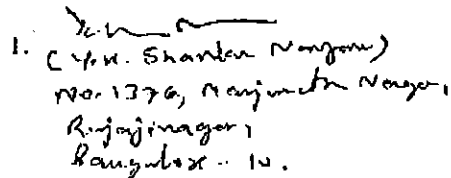 1.
(Y.N. Shankar Narayan)
No. 1376, Manjunath Nagar,
Rajajinagar,
Bangalore - 10.